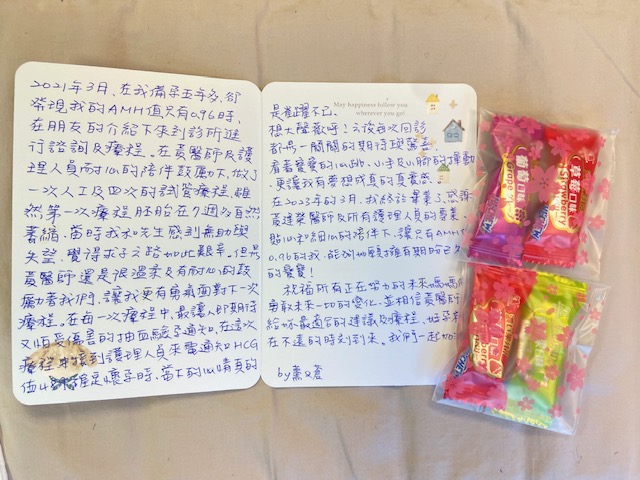 2021年3月,在我備孕五年多,卻
發現我的AMH值只有0.96時,
在朋友的介紹下來到診所進
行諮詢及療程。在黃醫師及護
理人員耐心的陪伴鼓勵下,做了
一次人工及四次的試管療程,雖
然第一次療程胚胎在7週多自然
萎縮,當時我和先生感到無助與
失望,覺得求子之路如此艱辛。但是
黃醫師還是很溫柔及有耐心的鼓
勵著我們,讓我更有勇氣面對下一次
療程。在每一次療程中,最讓人即期待
又怕受傷害的抽血驗孕通知,在這次
療程中接到護理人員來電通知HCG
確定是懷孕時,當下的心情真的
May happiness follow you
wherever you go!
是雀躍不已,
想大聲歡呼!之後每次回診
都是一關關的期待與驚喜
看著寶寶的心跳、小手及小腳的揮動
更讓我有夢想成真的真實感。
在2023年的3月,我終於畢業了,感謝
黃建榮醫師及所有護理人員的專業、
貼心和細心的陪伴下,讓只有AMH
0.96的我,能夠如願擁有期盼已久
的寶寶!
祝福所有正在努力的未來媽媽們
勇敢未來一切的變化,並相信黃醫師
給妳最適合的建議及療程,好孕
在不遠的時刻到來。我們一起加油
by蕭
葡萄口味
Grape
草莓口味
Strawberry